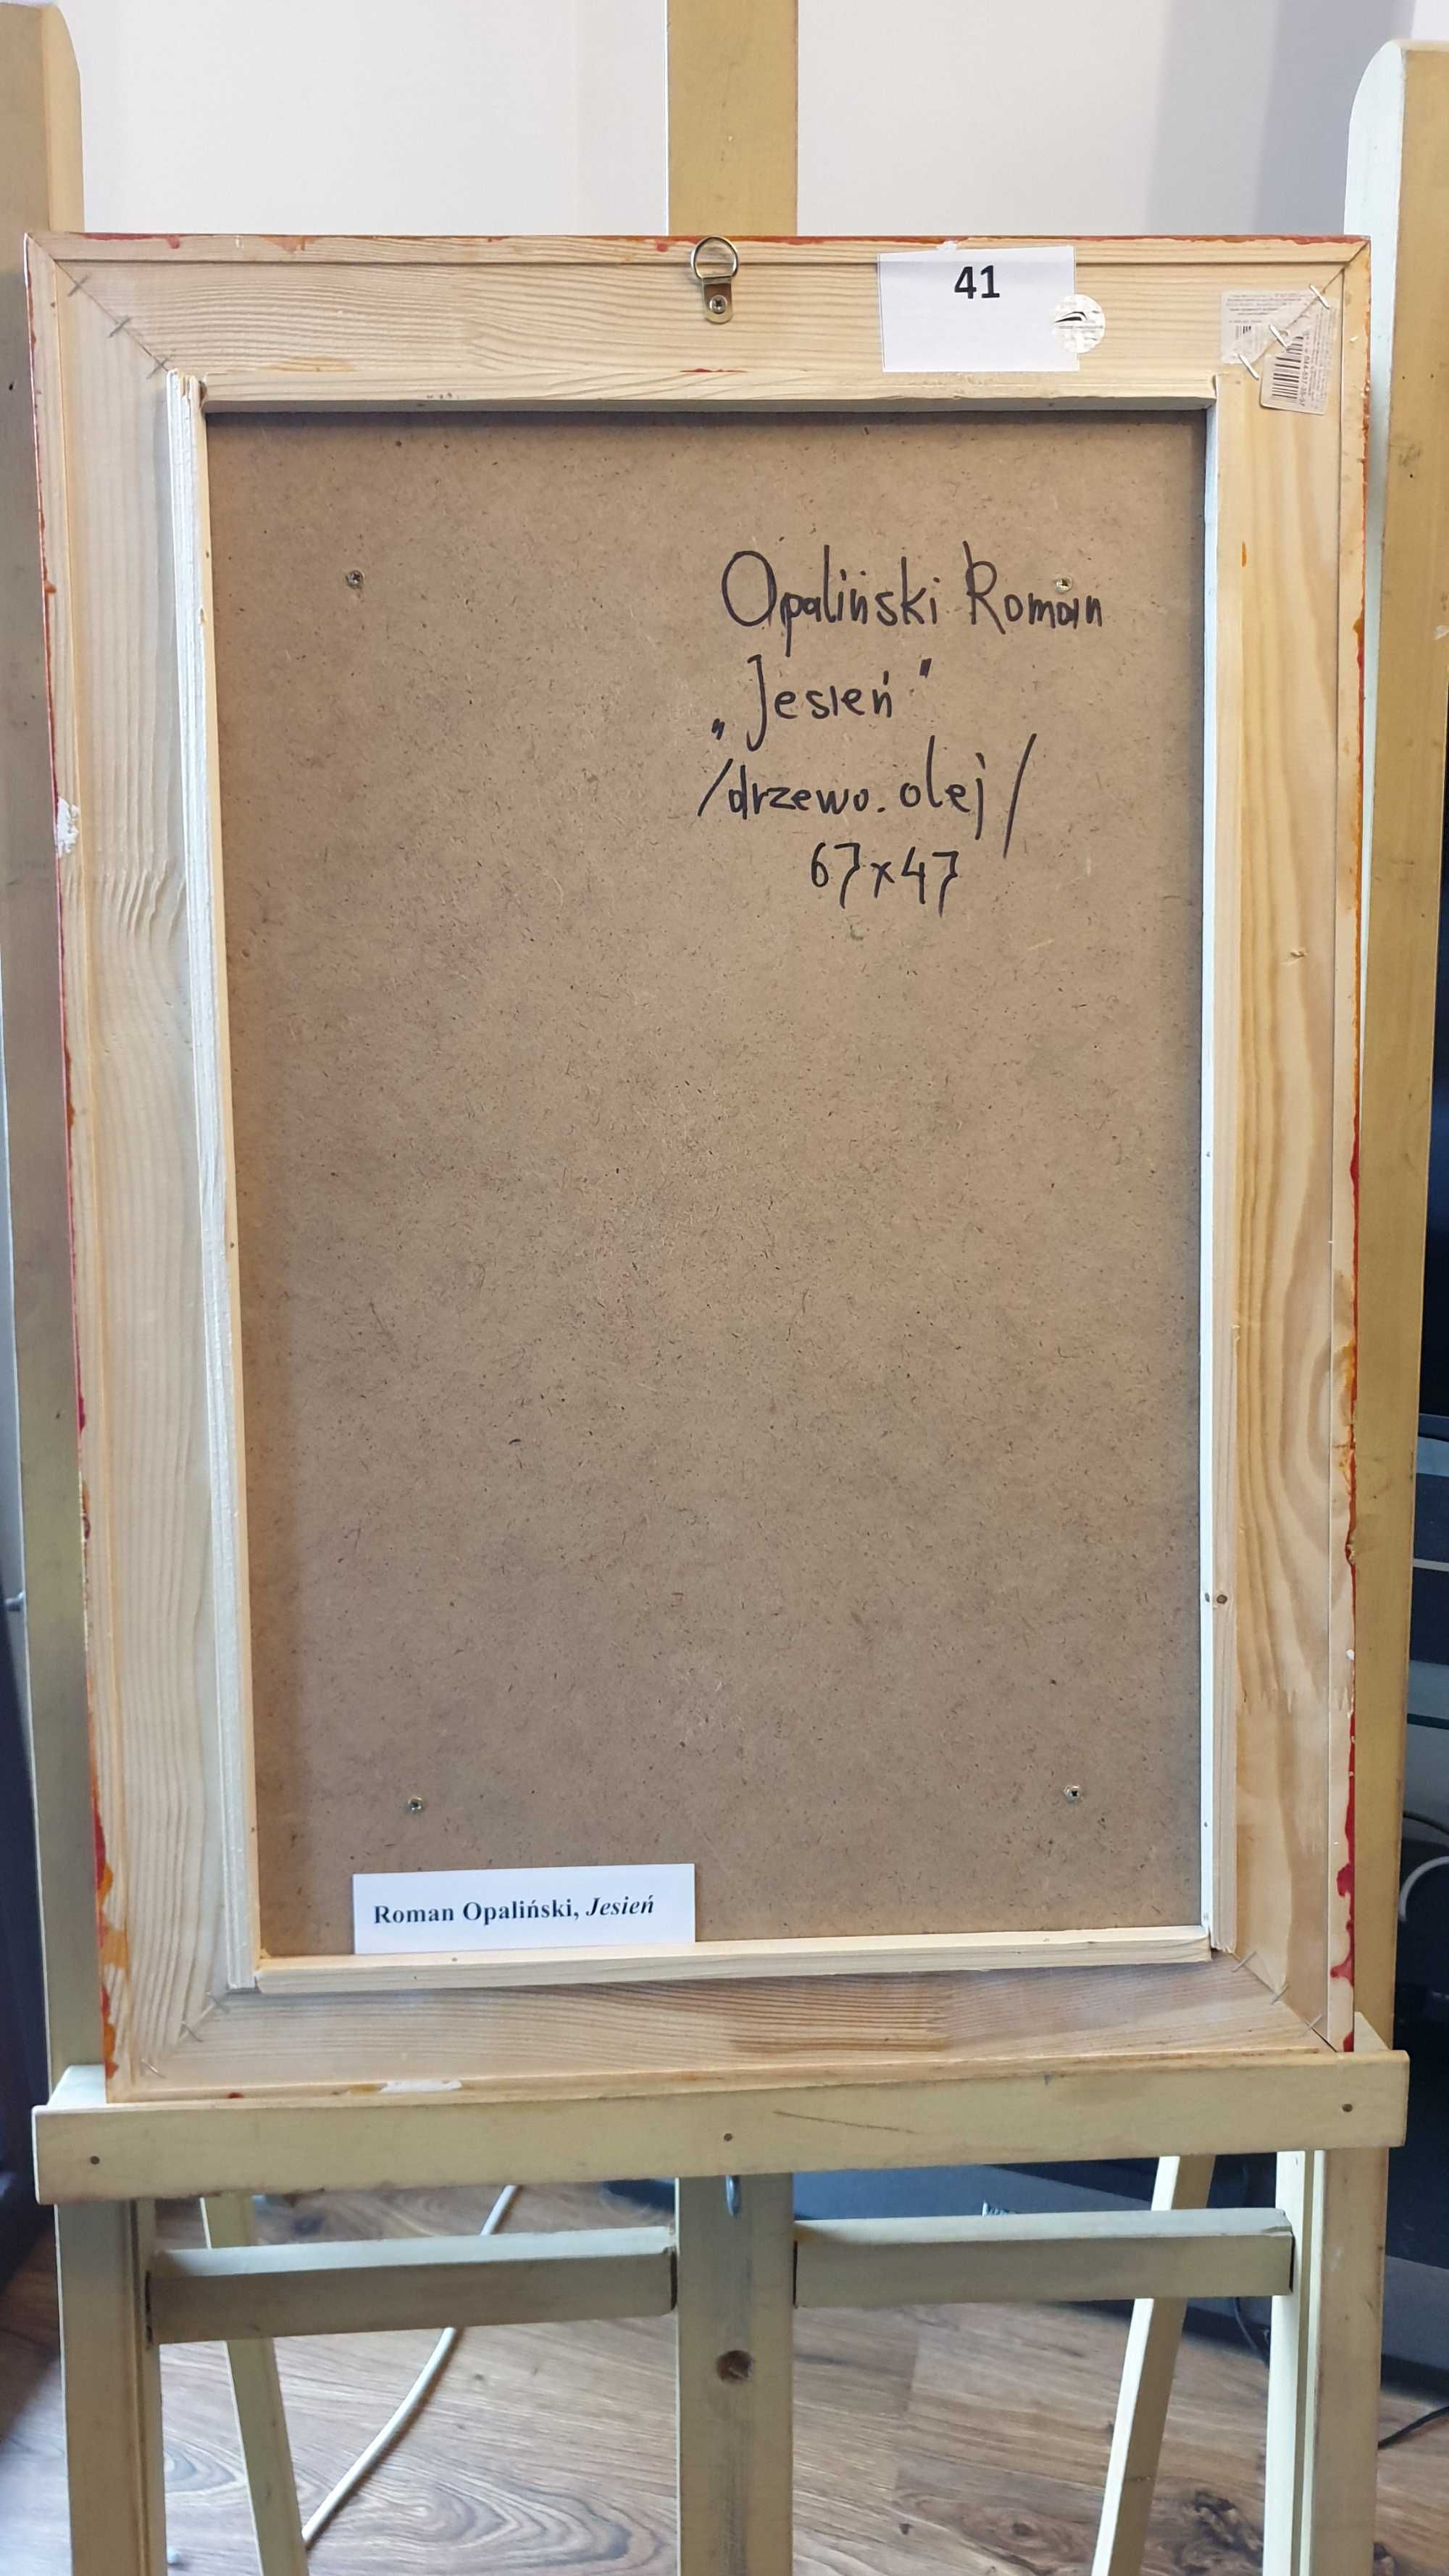 41
Opaliński Roman
„Jesień"
/drzewo. olej/
67x47
Roman Opaliński, Jesień